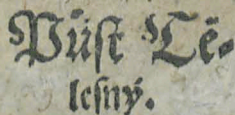 Půst Tě-
lesný.